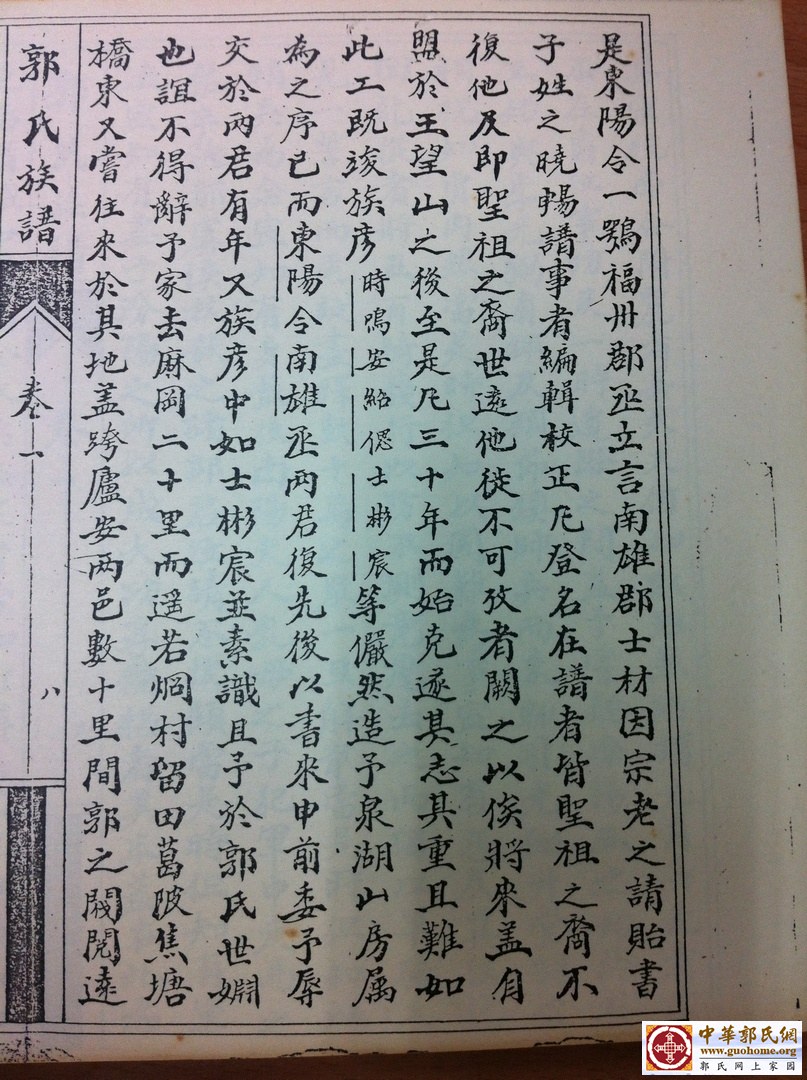 是東陽令一鶚福州郡丞立言南雄郡士材因宗老之請貽書
子姓之曉暢譜事者編輯校正凡登名在譜者皆聖祖之裔不
復他及即聖祖之裔世遠他徙不可攷者闕之以俟將來盖有
盟於王望山之後至是凡三十年而始克遂其志其重且難如
此工既竣族彦時鳴安紹偲士彬宸等儼然造予泉湖山房属
為之序已而東陽令南雄丞兩君復先後以書來申前委予辱
交於兩君有年又族彦中如士彬宸並素識且予於郭氏世婣
也誼不得辭予家去麻岡二十里而遥若烱村留田葛陂焦塘
橋東又嘗往來於其地盖跨廬安兩邑數十里間郭之閥閱遠
郭氏族譜
卷一
八
中華郭氏網
www.guohome.org
郭氏網上家园